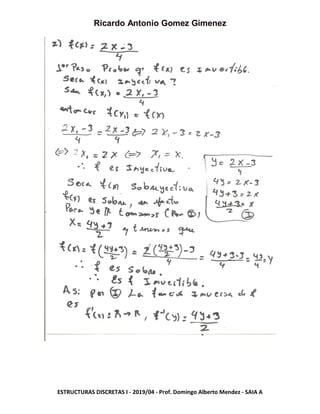 Ricardo Antonio Gomez Gimenez
2) f(x) = 2x-3/4
1er Paso Probar q' f(x) es invertible.
Sera f(x) Inyectiva?
Sea f(x₁) = 2x₁-3/4
entonces f(x₁) = f(x)
2x₁-3/4 = 2x-3/4 ⇔ 2x₁-3 = 2x-3
⇔ 2x₁ = 2x ⇔ x₁ = x.
∴ f es Inyectiva.
Sera f(x) Sobreyectiva
f(x) es Sobre, en efecto
Para y∈R tomamos (Por Ⓘ)
x = 4y+3/2 y tenemos que
y = 2x-3/4
4y = 2x-3
4y+3 = 2x
4y+3/2 = x
Ⓘ
f(x) = f(4y+3/2) = 2(4y+3/2)-3/4 = 4y+3-3/4 = 4y/4 = y
∴ f es Sobre.
∴ Es f Invertible.
As: por Ⓘ La función Inversa de f
es
f'(x) = R→R, f⁻¹(y) = 4y+3/2
ESTRUCTURAS DISCRETAS I - 2019/04 - Prof. Domingo Alberto Mendez - SAIA A